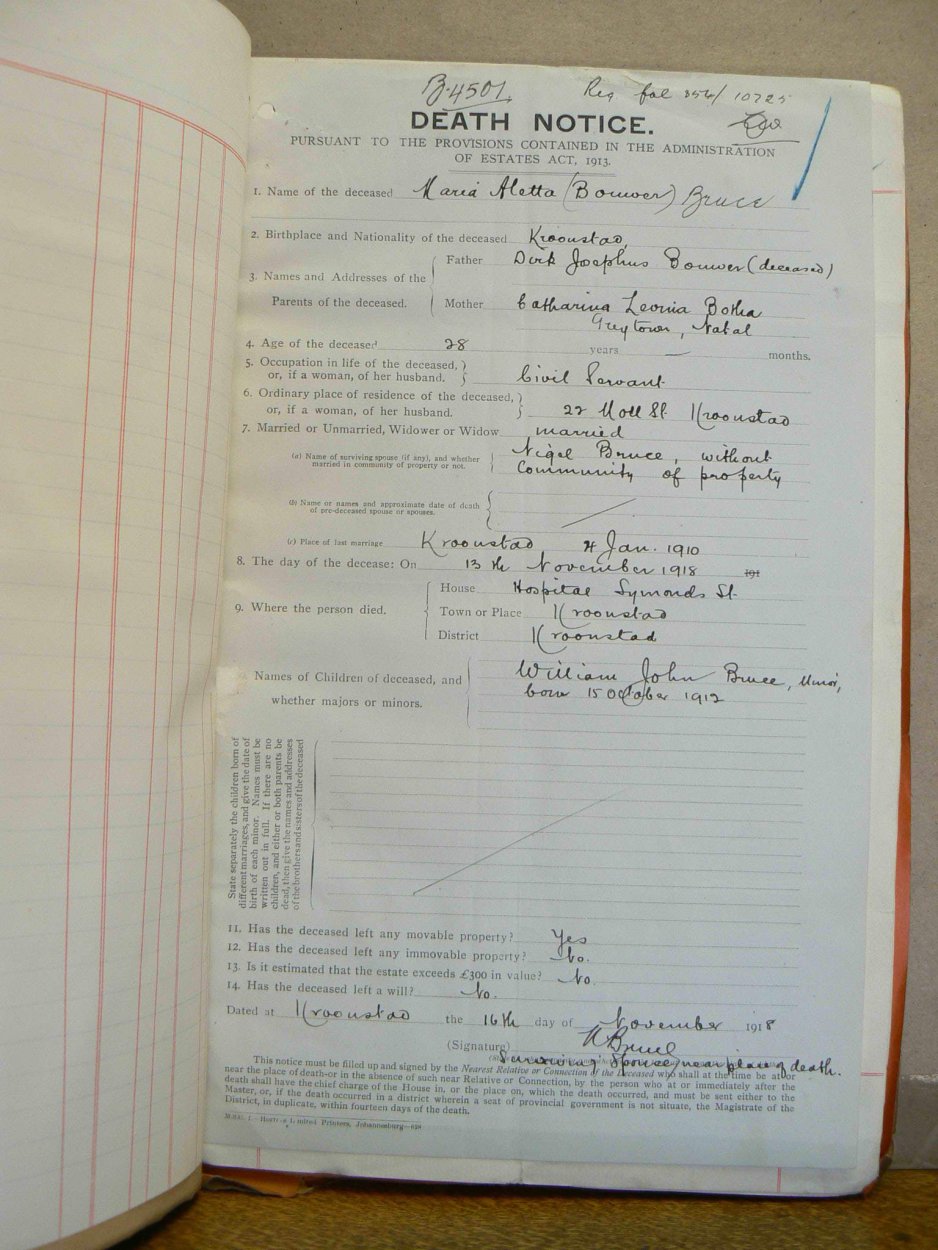 B.4501.
Reg fol 356/10725
DEATH NOTICE.
PURSUANT TO THE PROVISIONS CONTAINED IN THE ADMINISTRATION
OF ESTATES ACT, 1913.
1. Name of the deceased Maria Aletta (Bouwer) Bruce
2. Birthplace and Nationality of the deceased Kroonstad,
3. Names and Addresses of the Parents of the deceased.
Father Dirk Josephus Bouwer (deceased)
Mother Catharina Leonia Botha
Greytown, Natal
4. Age of the deceased 28 years — months.
5. Occupation in life of the deceased,
or, if a woman, of her husband. Civil Servant
6. Ordinary place of residence of the deceased,
or, if a woman, of her husband. 22 Moll St Kroonstad
7. Married or Unmarried, Widower or Widow married
(a) Name of surviving spouse (if any), and whether
married in community of property or not.
Nigel Bruce, without
Community of property
(b) Name or names and approximate date of death
of pre-deceased spouse or spouses.
(c) Place of last marriage Kroonstad 4 Jan. 1910
8. The day of the decease: On 13th November 1918 191
9. Where the person died.
House Hospital Symonds St
Town or Place Kroonstad
District Kroonstad
Names of Children of deceased, and
whether majors or minors.
William John Bruce, Minor,
born 15 October 1912
State separately the children born of
different marriages, and give the date of
birth of each minor. Names must be
written out in full. If there are no
children, and either or both parents be
dead, then give the names and addresses
of the brothers and sisters of the deceased
11. Has the deceased left any movable property? Yes
12. Has the deceased left any immovable property? No.
13. Is it estimated that the estate exceeds £300 in value? No.
14. Has the deceased left a will? No.
Dated at Kroonstad the 16th day of November 1918
(Signature) N Bruce
Surviving Spouse near place of death.
This notice must be filled up and signed by the Nearest Relative or Connection of the Deceased who shall at the time be at or
near the place of death-or in the absence of such near Relative or Connection, by the person who at or immediately after the
death shall have the chief charge of the House in, or the place on, which the death occurred, and must be sent either to the
Master, or, if the death occurred in a district wherein a seat of provincial government is not situate, the Magistrate of the
District, in duplicate, within fourteen days of the death.
Printers, Johannesburg